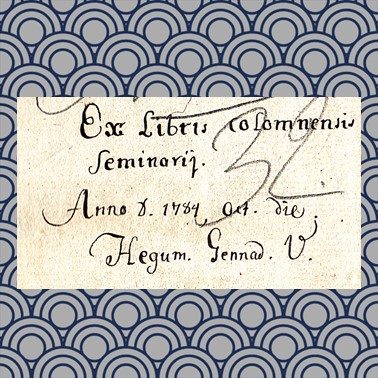 Ex Libris Colomnensis
Seminarij.
32.
Anno D. 1784, Oct. die
Hegum. Gennad. V.